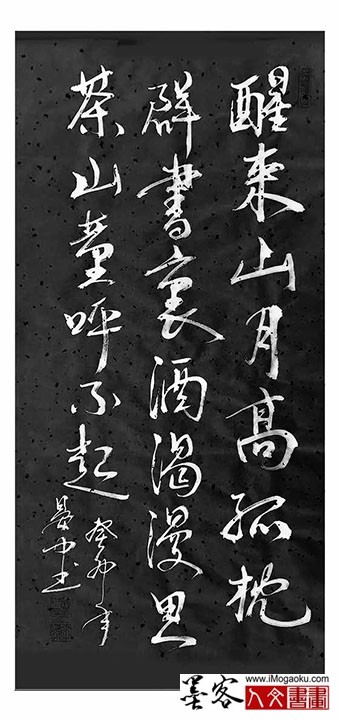 醒來山月高孤枕
群書裏酒渴漫思
茶山童呼不起
癸卯年
www.iMogaoku.com
墨客人文書畫